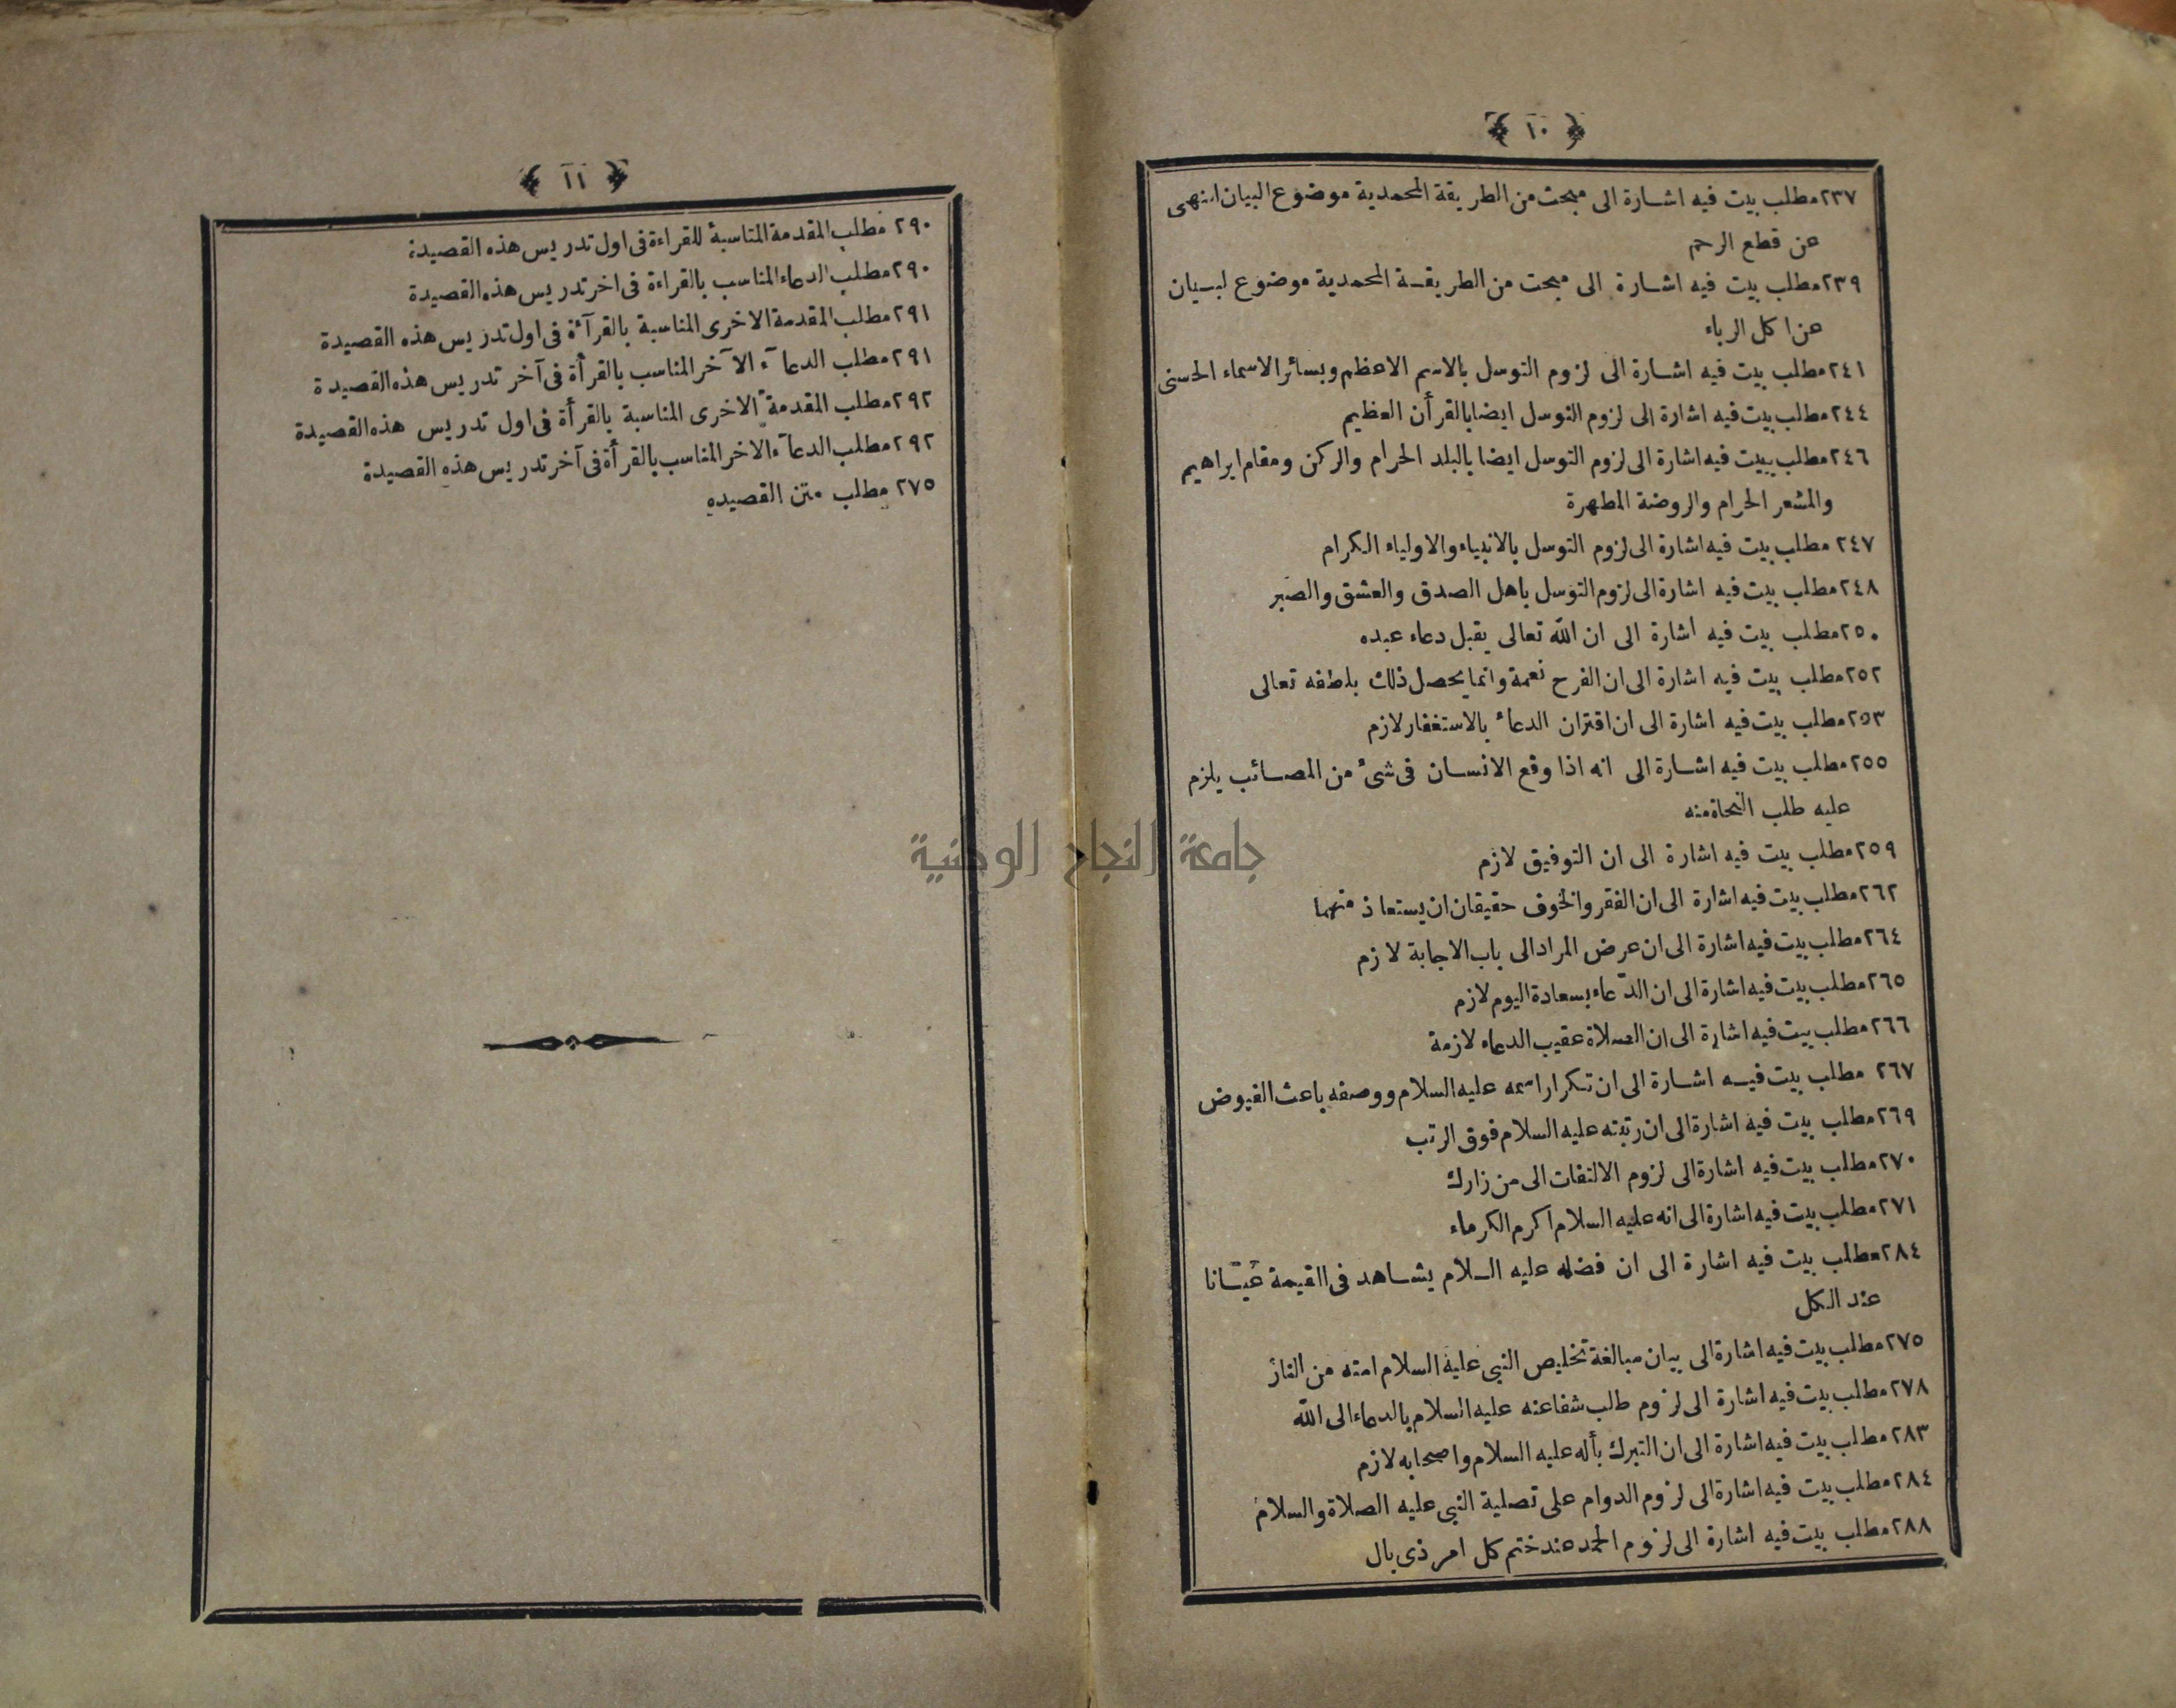 ﴿ ١٠ ﴾
٢٣٧ مطلب بيت فيه اشارة الى مبحث من الطريقة المحمدية موضوع البيان انتهى
عن قطع الرحم
٢٣٩ مطلب بيت فيه اشارة الى مبحث من الطريقة المحمدية موضوع لبيان
عن اكل الرباء
٢٤١ مطلب بيت فيه اشارة الى لزوم التوسل بالاسم الاعظم وبسائر الاسماء الحسنى
٢٤٤ مطلب بيت فيه اشارة الى لزوم التوسل ايضا بالقرأن العظيم
٢٤٦ مطلب ببيت فيه اشارة الى لزوم التوسل ايضا بالبلد الحرام والركن ومقام ابراهيم
والمشعر الحرام والروضة المطهرة
٢٤٧ مطلب بيت فيه اشارة الى لزوم التوسل بالانبياء والاولياء الكرام
٢٤٨ مطلب بيت فيه اشارة الى لزوم التوسل باهل الصدق والعشق والصبر
٢٥٠ مطلب بيت فيه اشارة الى ان الله تعالى يقبل دعاء عبده
٢٥٢ مطلب بيت فيه اشارة الى ان الفرح نعمة وانما يحصل ذلك بلطفه تعالى
٢٥٣ مطلب بيت فيه اشارة الى ان اقتران الدعاء بالاستغفار لازم
٢٥٥ مطلب بيت فيه اشارة الى انه اذا وقع الانسان فى شئ من المصائب يلزم
عليه طلب النجاة منه
٢٥٩ مطلب بيت فيه اشارة الى ان التوفيق لازم
٢٦٢ مطلب بيت فيه اشارة الى ان الفقر والخوف حقيقان ان يستعاذ منهما
٢٦٤ مطلب بيت فيه اشارة الى ان عرض المراد الى باب الاجابة لازم
٢٦٥ مطلب بيت فيه اشارة الى ان الدّعاء بسعادة اليوم لازم
٢٦٦ مطلب بيت فيه اشارة الى ان الصلاة عقيب الدعاء لازمة
٢٦٧ مطلب بيت فيه اشارة الى ان تكرار اسمه عليه السلام ووصفه باعث الفيوض
٢٦٩ مطلب بيت فيه اشارة الى ان رتبته عليه السلام فوق الرتب
٢٧٠ مطلب بيت فيه اشارة الى لزوم الالتفات الى من زارك
٢٧١ مطلب بيت فيه اشارة الى انه عليه السلام اكرم الكرماء
٢٨٤ مطلب بيت فيه اشارة الى ان فضله عليه السلام يشاهد فى القيمة عيانا
عند الكل
٢٧٥ مطلب بيت فيه اشارة الى بيان مبالغة تخليص النبى عليه السلام امته من النار
٢٧٨ مطلب بيت فيه اشارة الى لزوم طلب شفاعته عليه السلام بالدعاء الى الله
٢٨٣ مطلب بيت فيه اشارة الى ان التبرك بأله عليه السلام واصحابه لازم
٢٨٤ مطلب بيت فيه اشارة الى لزوم الدوام على تصلية النبى عليه الصلاة والسلام
٢٨٨ مطلب بيت فيه اشارة الى لزوم الحمد عند ختم كل امر ذى بال
﴿ ١١ ﴾
٢٩٠ مطلب المقدمة المتاسبة للقراءة فى اول تدريس هذه القصيدة
٢٩٠ مطلب الدعاء المناسب بالقراءة فى اخر تدريس هذه القصيدة
٢٩١ مطلب المقدمة الاخرى المناسبة بالقرآءة فى اول تدريس هذه القصيدة
٢٩١ مطلب الدعآء الآخر المناسب بالقرأة فى آخر تدريس هذه القصيدة
٢٩٢ مطلب المقدمة الاخرى المناسبة بالقرأة فى اول تدريس هذه القصيدة
٢٩٢ مطلب الدعآء الاخر المناسب بالقرأة فى آخر تدريس هذه القصيدة
٢٧٥ مطلب متن القصيده
جامعة النجاح الوطنية